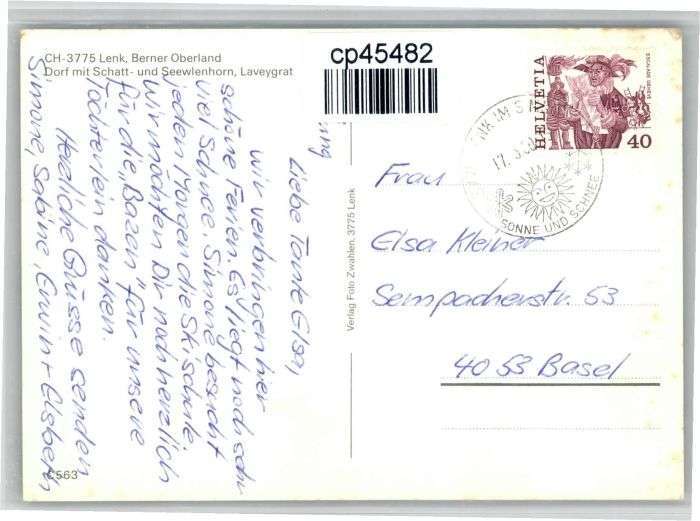 CH-3775 Lenk, Berner Oberland
Dorf mit Schatt- und Seewlenhorn, Laveygrat
cp45482
Liebe Tante Elsa,
Wir verbringen hier
schöne Ferien. Es liegt noch sehr
viel Schnee. Simone besucht
jeden Morgen die Skischule.
Wir möchten Dir noch herzlich
für die „Bazen" für unsere
Töchterlein danken.
Herzliche Grüsse senden
Simone, Sabine, Erwin + Elsbeth
C563
Verlag Foto Zwahlen, 3775 Lenk
HELVETIA
ESCALADE GENÈVE
40
LENK IM S
17.
SONNE UND SCHNEE
Frau
Elsa Kleiner
Sempacherstr. 53
4053 Basel